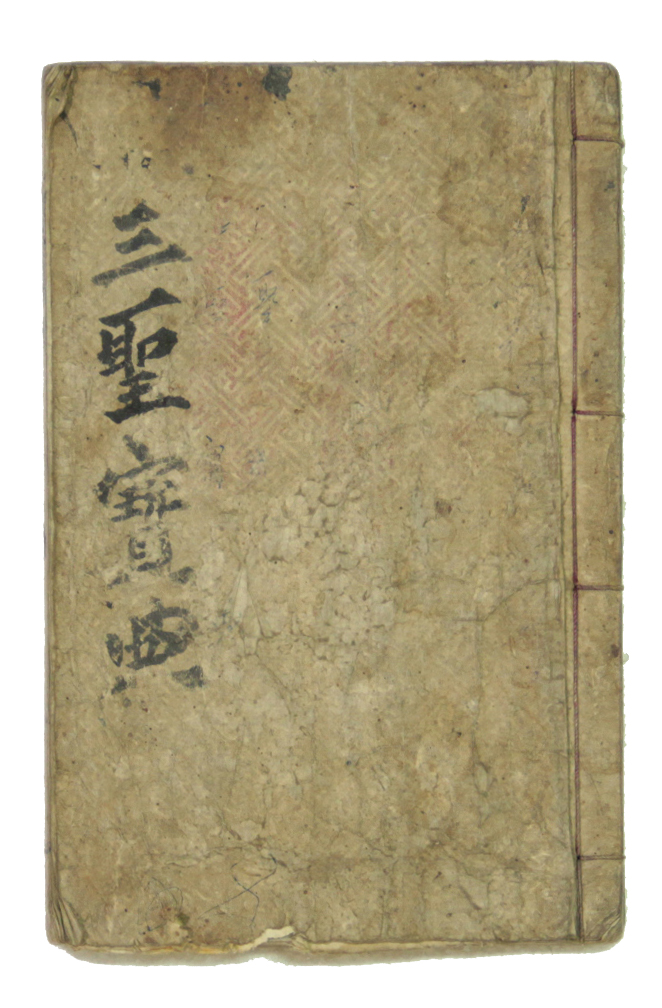 三聖寶典